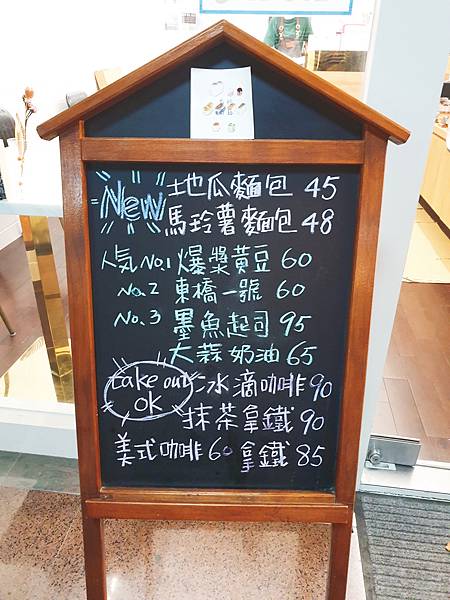 New 地瓜麵包 45
馬玲薯麵包 48
人気 No.1 爆漿黃豆 60
No.2 東橋一號 60
No.3 墨魚起司 95
大蒜奶油 65
take out OK 冰滴咖啡 90
抹茶拿鐵 90
美式咖啡 60 拿鐵 85